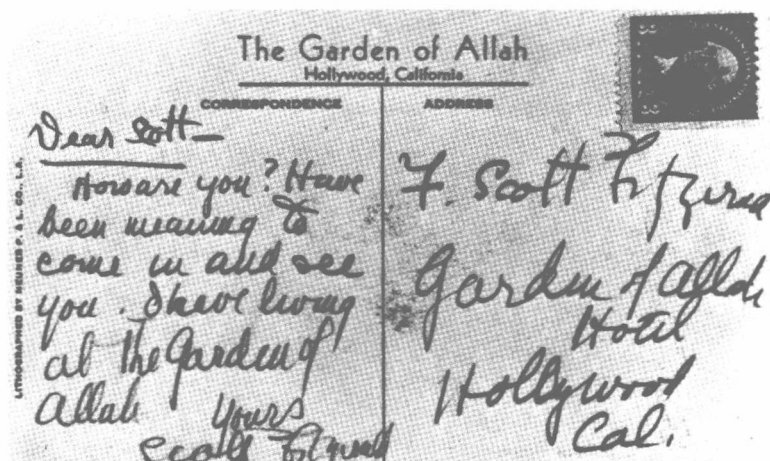 The Garden of Allah
Hollywood, California
CORRESPONDENCE
ADDRESS
LITHOGRAPHED BY NEUNER P. & L. CO., L.A.
Dear Scott—
How are you? Have
been meaning to
come in and see
you. I have living
at the Garden of
Allah
Yours
Scott Fitzgerald
F. Scott Fitzgerald
Garden of Allah
Hotel
Hollywood
Cal.